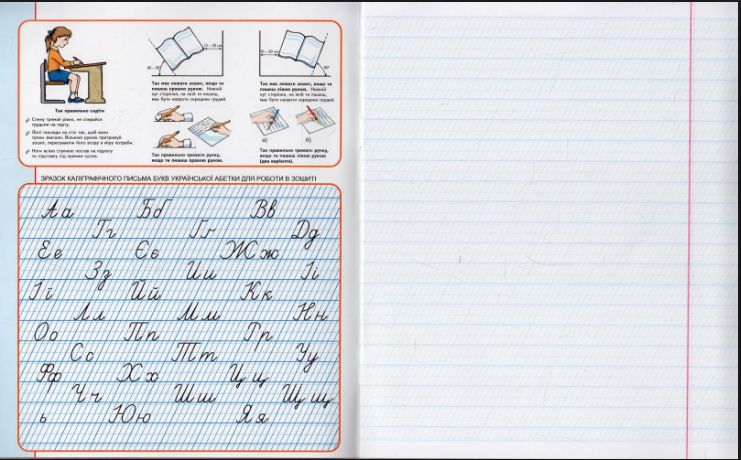 Так правильно сидіти
Спину тримай рівно, не спирайся
грудьми на парту.
Лікті поклади на стіл так, щоб вони
трохи звисали. Вільною рукою притримуй
зошит, пересуваючи його вгору в міру потреби.
Ноги всією ступнею постав на підлогу
чи підставку під прямим кутом.
15—20 см
Так має лежати зошит, якщо ти
пишеш правою рукою. Нижній
кут сторінки, на якій ти пишеш,
має бути напроти середини грудей.
Так правильно тримати ручку,
якщо ти пишеш правою рукою.
Так має лежати зошит, якщо ти
пишеш лівою рукою. Нижній
кут сторінки, на якій ти пишеш,
має бути напроти середини грудей.
а) б)
Так правильно тримати ручку,
якщо ти пишеш лівою рукою
(два варіанти).
ЗРАЗОК КАЛІГРАФІЧНОГО ПИСЬМА БУКВ УКРАЇНСЬКОЇ АБЕТКИ ДЛЯ РОБОТИ В ЗОШИТІ
Аа Бб Вв
Гг Ґґ Дд
Ее Єє Жж
Зз Ии Іі
Її Йй Кк
Лл Мм Нн
Оо Пп Рр
Сс Тт Уу
Фф Хх Цц
Чч Шш Щщ
ь Юю Яя